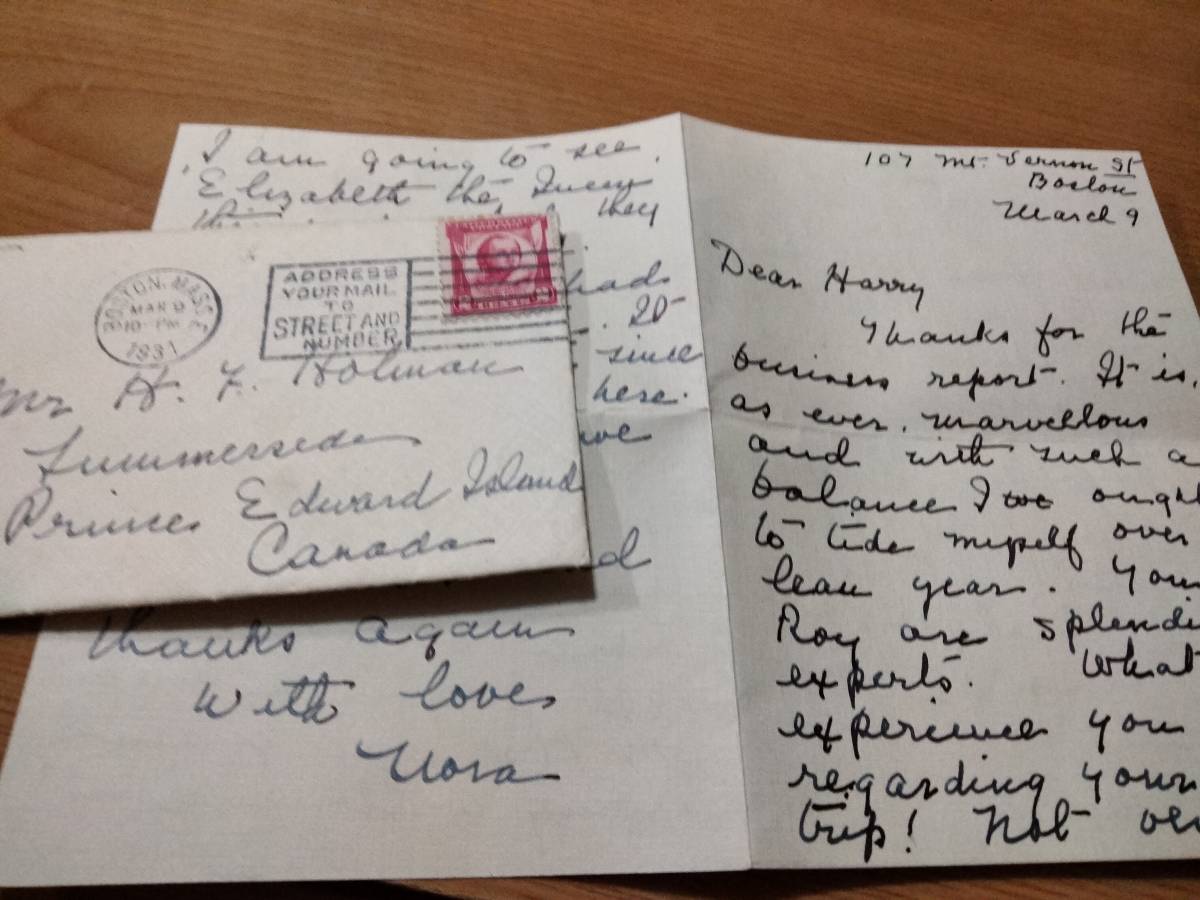 I am going to see
Elizabeth the Queen
they
hads
. 20
since
here.
thanks again
with love
Nora
BOSTON, MASS.
MAR 9
10-PM
1931
ADDRESS
YOUR MAIL
TO
STREET AND
NUMBER
Mr H. F. Holman
Summerside
Prince Edward Island
Canada
107 Mt. Vernon St
Boston
March 9
Dear Harry
Thanks for the
business report. It is,
as ever, marvellous
and with such a
balance I ought
to tide myself over
lean year. You
Roy are splendi
experts. What
experience you
regarding your
trip! Not ver